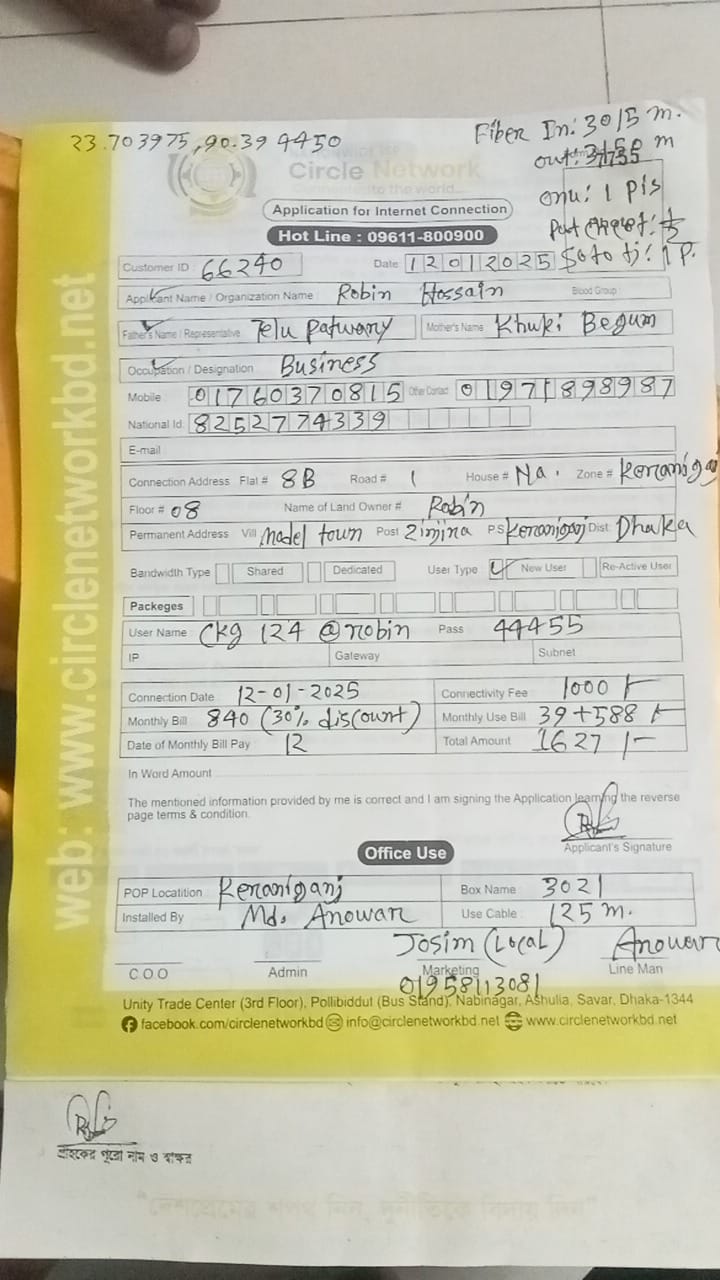 23.703975, 90.394450
Fiber In: 3015 m.
out: m
onu: 1 pis
Circle Network
Connected to the world...
Application for Internet Connection
Hot Line : 09611-800900
Customer ID 66240 Date 12012025
Applicant Name / Organization Name Robin Hossain Blood Group
Father's Name / Representative Telu Patwary Mother's Name Khuki Begum
Occupation / Designation Business
Mobile 01760370815 Other Contact 01971898987
National Id. 8252774339
E-mail
Connection Address Flat # 8B Road # 1 House # Na. Zone # Keraniganj
Floor # 08 Name of Land Owner # Robin
Permanent Address Vill Model town Post Zinjira P.S Keraniganj Dist: Dhaka
Bandwidth Type Shared Dedicated User Type New User Re-Active User
Packeges
User Name Ckg 124 @robin Pass 44455
IP Gateway Subnet
Connection Date 12-01-2025 Connectivity Fee 1000/-
Monthly Bill 840 (30% discount) Monthly Use Bill 39+588/-
Date of Monthly Bill Pay 12 Total Amount 1627/-
In Word Amount
The mentioned information provided by me is correct and I am signing the Application learning the reverse
page terms & condition.
Applicant's Signature
Office Use
POP Locatition Keraniganj Box Name 3021
Installed By Md. Anowar Use Cable 125 m.
Josim (Local) Anowar
C O O Admin Marketing Line Man
01958113081
Unity Trade Center (3rd Floor), Pollibiddut (Bus Stand), Nabinagar, Ashulia, Savar, Dhaka-1344
facebook.com/circlenetworkbd info@circlenetworkbd.net www.circlenetworkbd.net
web: www.circlenetworkbd.net
গ্রাহকের পুরো নাম ও স্বাক্ষর
"দেশপ্রেমের শপথ নিন, দুর্নীতিকে বিদায় দিন"